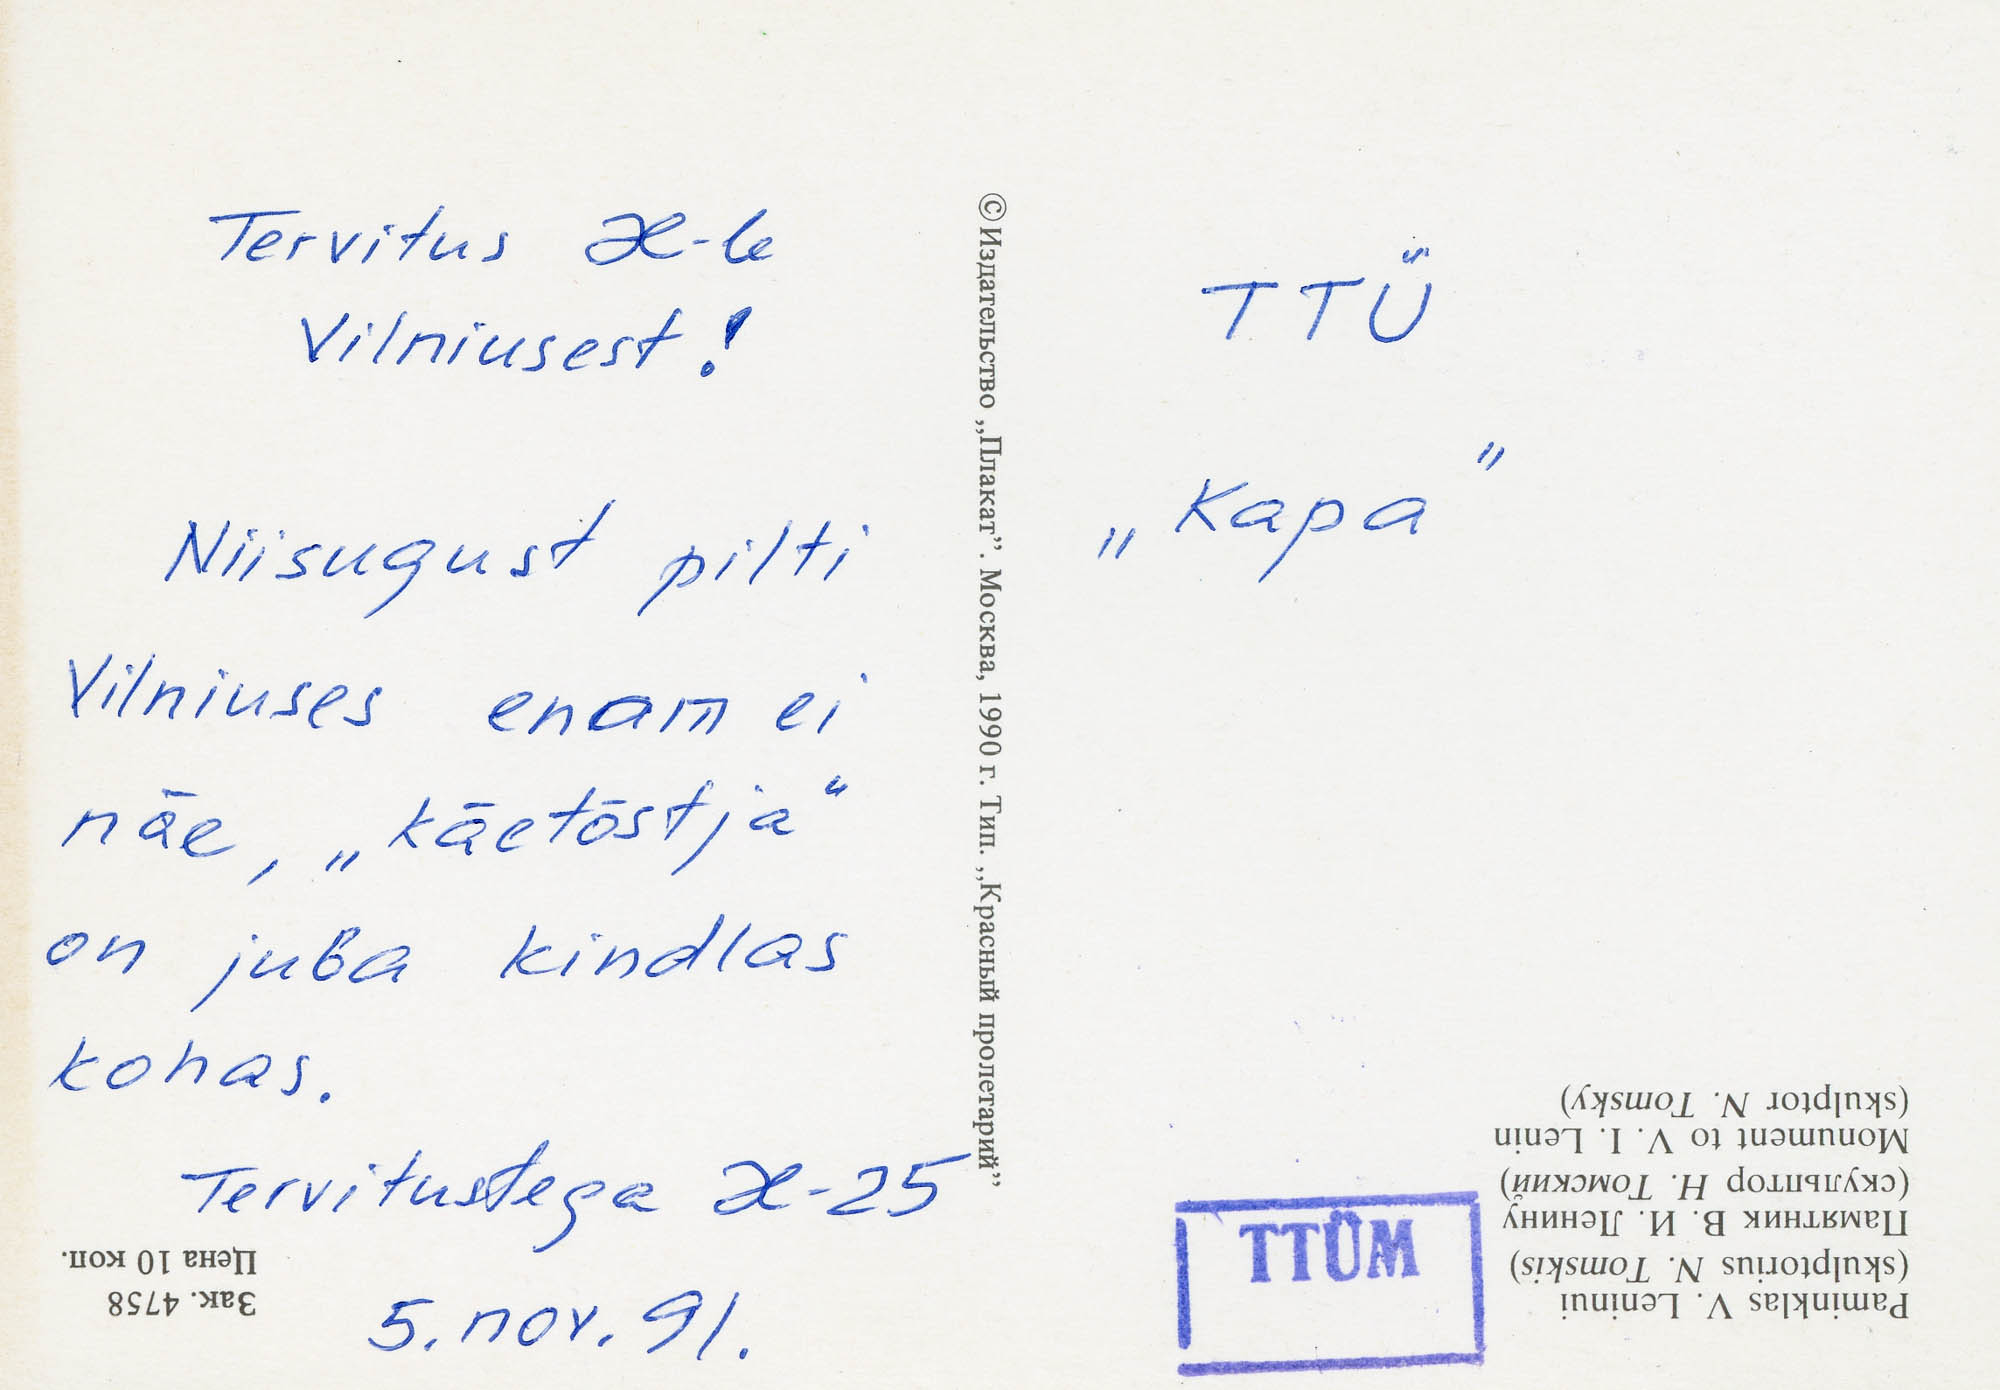 Tervitus æ-le
Vilniusest!
Niisugust pilti
Vilniuses enam ei
näe, „käetõstja“
on juba kindlas
kohas.
Tervitustega æ-25
5. nov. 91.
Цена 10 коп.
Зак. 4758
© Издательство „Плакат”. Москва, 1990 г. Тип. „Красный пролетарий”
TTÜ
„Kapa”
TTÜM
Paminklas V. Leninui
(skulptorius N. Tomskis)
Памятник В. И. Ленину
(скульптор Н. Томский)
Monument to V. I. Lenin
(skulptor N. Tomsky)